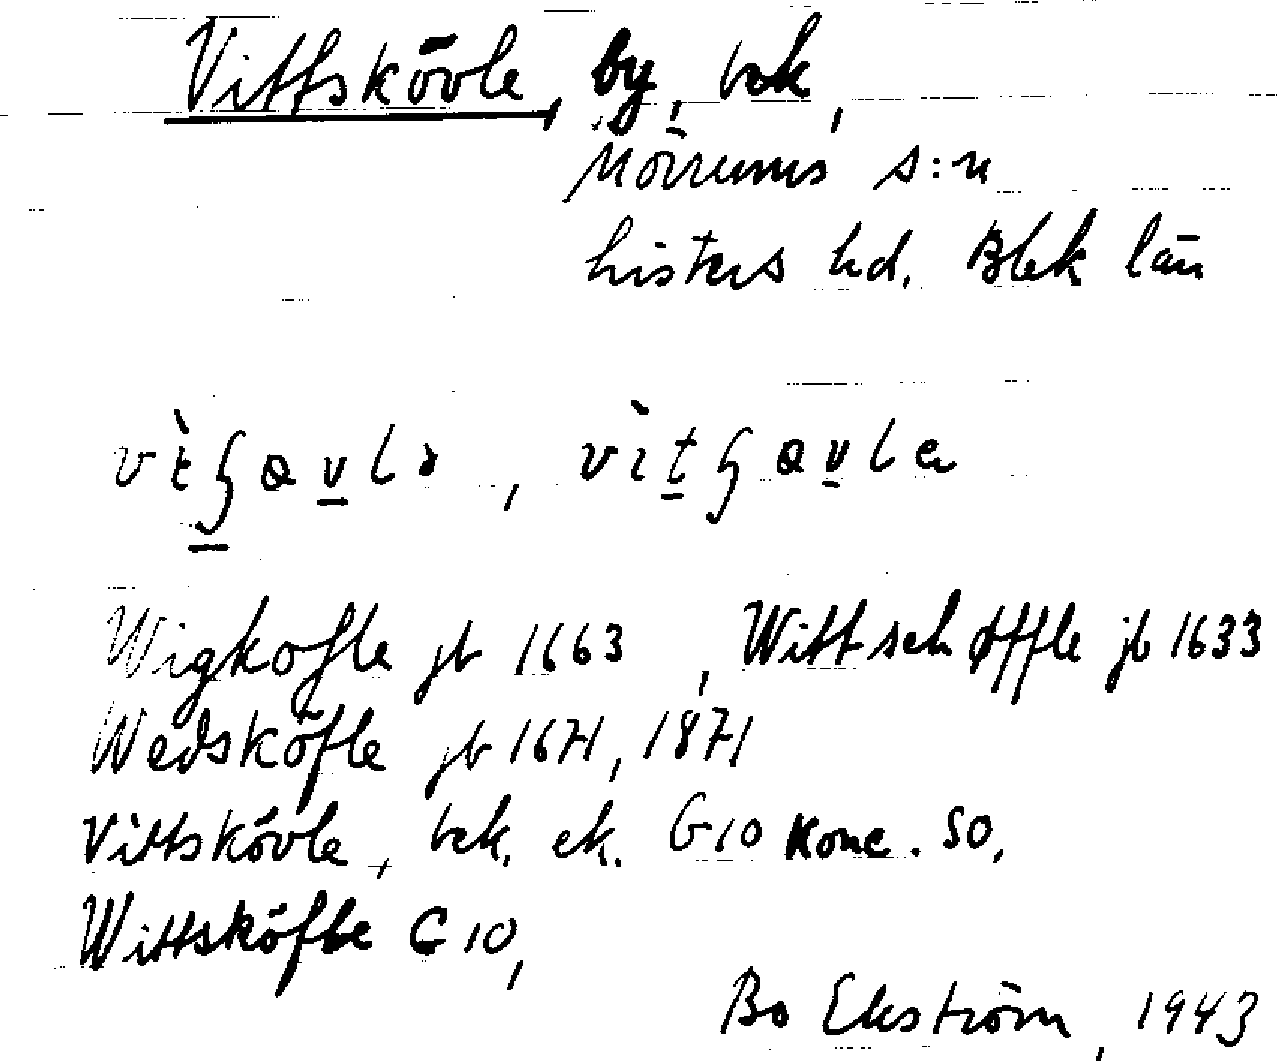 Vittskövle, by, tvk,
Mörrums s:n
Listers hd. Blek län
Wigkofle jb 1663, Wittschøffle jb 1633
Wedsköfle jb 1671, 1871
Vittskövle, tvk. ek. G10 konc. SO,
Wittsköfle G10,
Bo Ekström, 1943